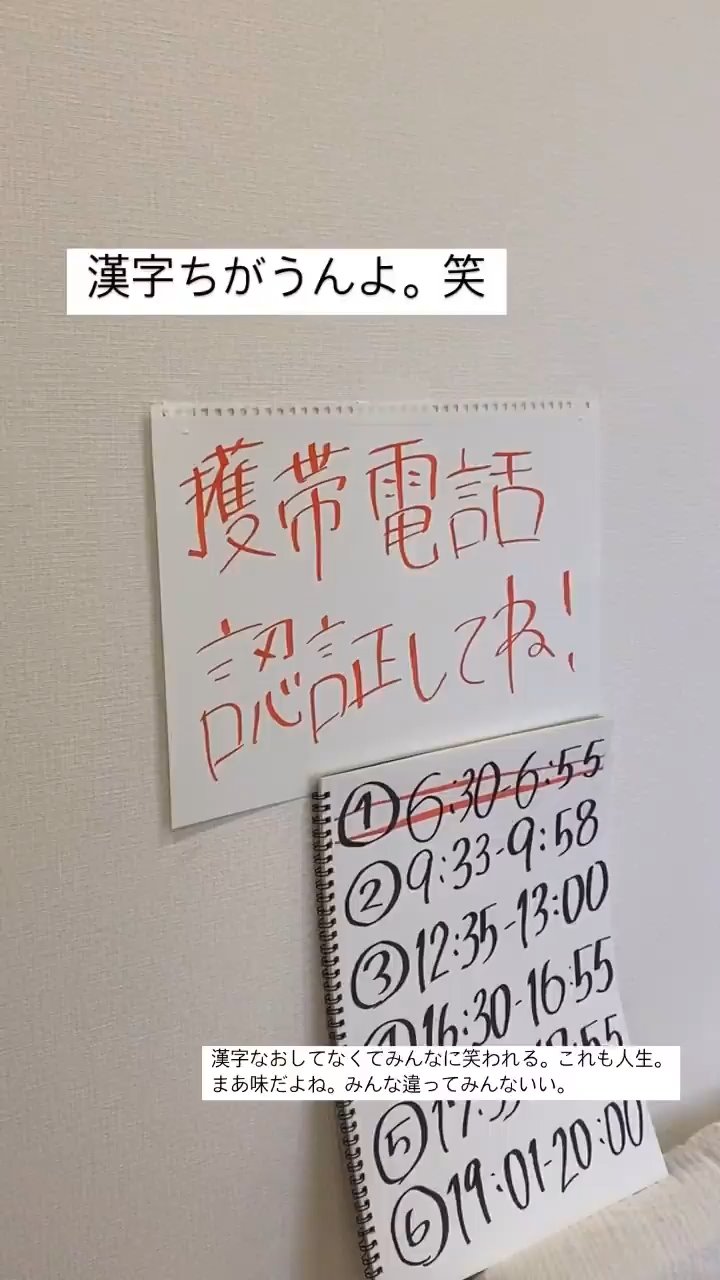 漢字ちがうんよ。笑
擭帯電話
認証してね!
①6:30-6:55
②9:33-9:58
③12:35-13:00
④16:30-16:55
漢字なおしてなくてみんなに笑われる。これも人生。
まあ味だよね。みんな違ってみんないい。
⑤
⑥19:01-20:00